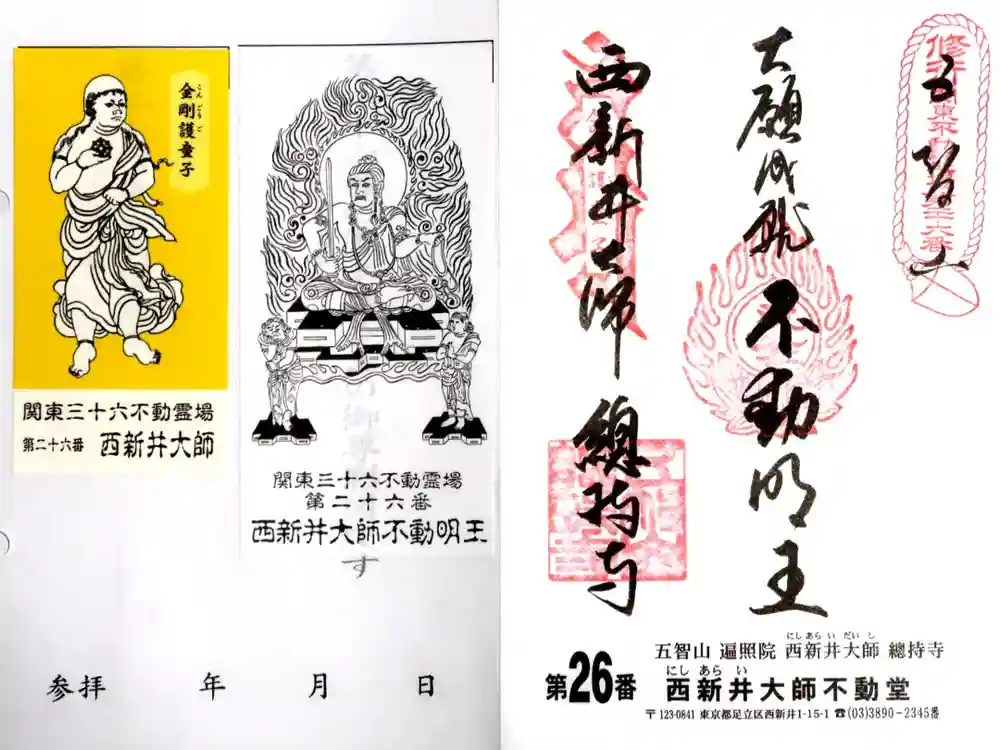 金剛護童子
こんごうご
関東三十六不動霊場
第二十六番 西新井大師
関東三十六不動霊場
第二十六番
西新井大師不動明王
す
参拝 年 月 日
大願成就 不動明王
西新井大師 總持寺
五智山 遍照院 西新井大師 總持寺
にしあらいだいし
第26番 西新井大師不動堂
にしあらい
〒123-0841 東京都足立区西新井1-15-1 ☎(03)3890-2345番